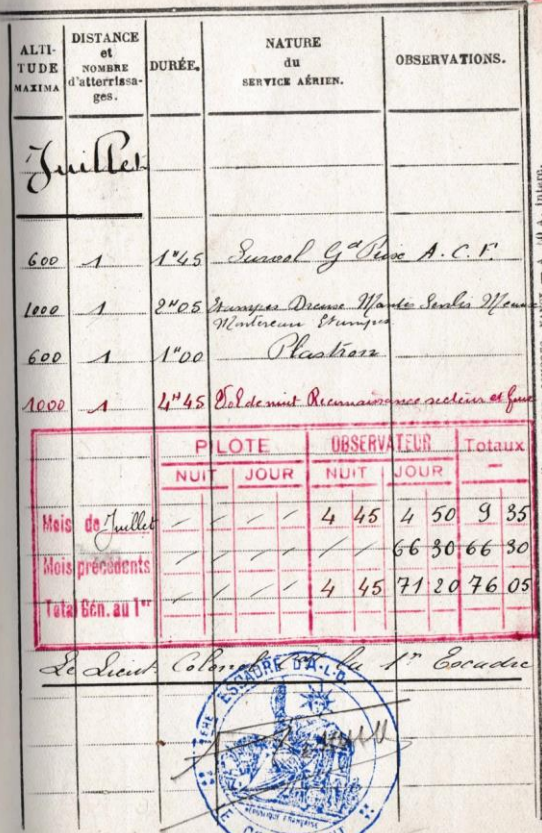 ALTI-
TUDE
MAXIMA
DISTANCE
et
NOMBRE
d'atterrissa-
ges.
DURÉE.
NATURE
du
SERVICE AÉRIEN.
OBSERVATIONS.
Juillet
600 1 1H45 Survol Gd Prix A.C.F.
1000 1 2H05 Etampes Dreux Mantes Senlis Meaux
Montereau Etampes
600 1 1H00 Plastron
1000 1 4H45 Vol de nuit Reconnaissance secteurs et
PILOTE OBSERVATEUR Totaux
NUIT JOUR NUIT JOUR -
Mois de Juillet / / / / 4 45 4 50 9 35
Mois précédents / / / / / / 66 30 66 30
Total Gén. au 1er / / / / 4 45 71 20 76 05
Le Lieut Colonel Cdt la 1re Escadre
1ERE ESCADRE D'A.L.D.
REPUBLIQUE FRANÇAISE